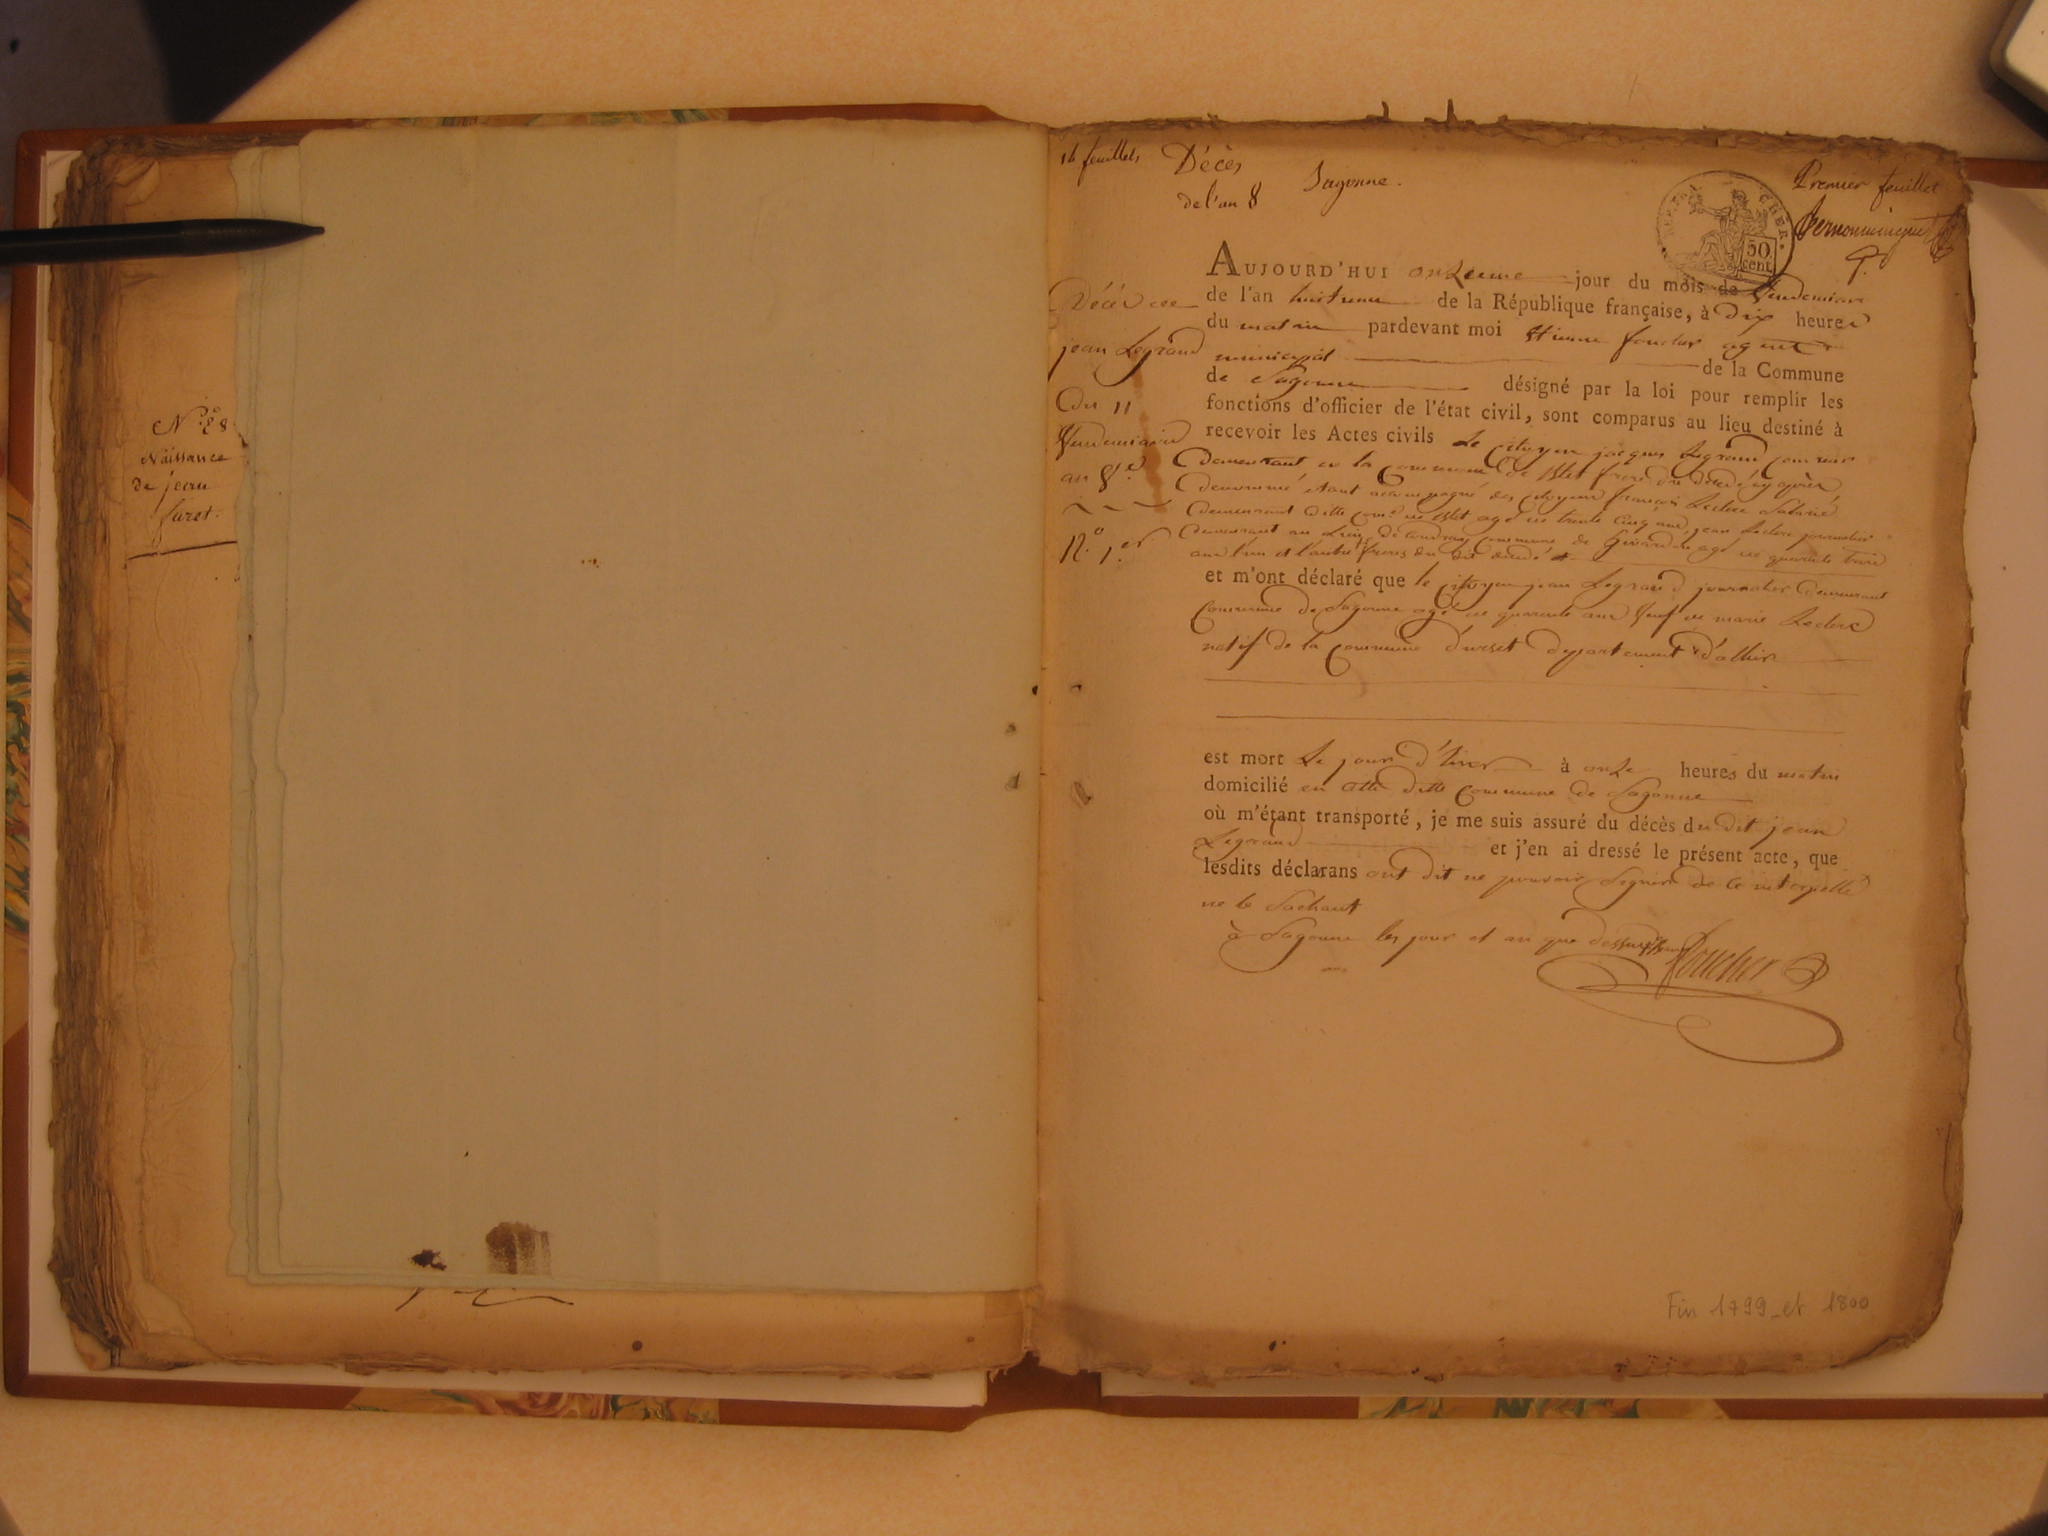 N.º 28
Naissance
de jean
furet.
14 feuillets
Décès
de l'an 8
Sagonne.
Premier feuillet
CHER.
50
cent
Décés de
jean Legrand
du 11
Vendemiaire
an 8.e
N.º 1.er
AUJOURD'HUI onzieme jour du mois de Vendemiaire
de l'an huitieme de la République française, à dix heures
du matin pardevant moi Etienne foucher agent
municipal de la Commune
de Sagonne désigné par la loi pour remplir les
fonctions d'officier de l'état civil, sont comparus au lieu destiné à
recevoir les Actes civils Le citoyen jacques Legrand
demeurant en la Commune de Blet frere du décédé cy après
denommé etant accompagné des citoyens françois Leclerc
demeurant ditte com.e de Blet agé de trente cinq ans, jean Leclerc journalier
demeurant au commune de Givardon agé de quarante trois
ans l'un et l'autre freres du dit décédé
et m'ont déclaré que le citoyen jean Legrand journalier demeurant
Commune de Sagonne agé de quarante ans veuf de marie Leclerc
natif de la Commune d'urcet departement d'allier
est mort Le jour d'hier à onze heures du matin
domicilié en cette ditte Commune de Sagonne
où m'étant transporté, je me suis assuré du décès du dit jean
Legrand et j'en ai dressé le présent acte, que
lesdits déclarans ont dit ne pouvoir Signer de ce interpellé
ne le Sachant
à Sagonne les jour et an que dessus
Foucher
Fin 1799 et 1800